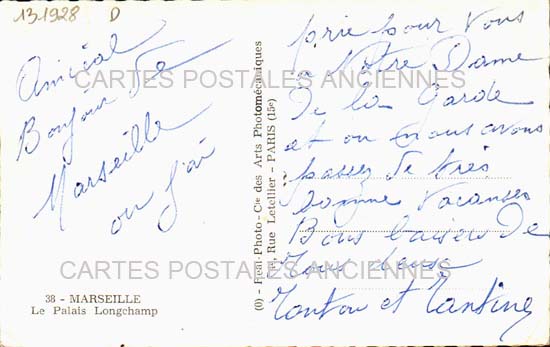 13.1928 D
Amical
Bonjour De
Marseille
ou j'ai
38 - MARSEILLE
Le Palais Longchamp
(O) - Real-Photo - Cie des Arts Photomécaniques
, Rue Letellier - PARIS (15e)
prie pour Vous
a Notre Dame
De la Garde
et ou nous avons
passez De très
bonne Vacanses
Bons baisers De
Nous deux
Tonton et Tantine
CARTES POSTALES ANCIENNES
CARTES POSTALES ANCIENNES